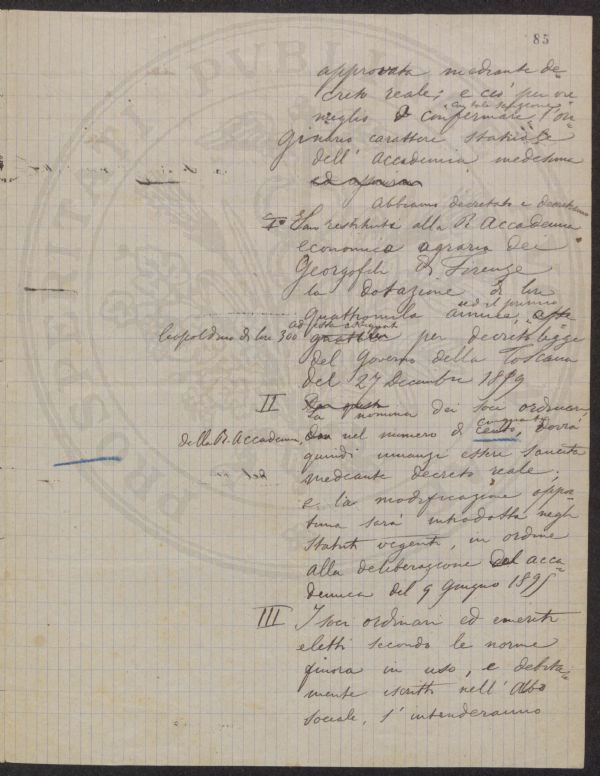 85
approvata mediante de-
creto reale; e ciò per me
meglio confermare, l'ori
ginario carattere statale
dell'Accademia medesima
ed
Abbiamo decretato e decretiamo
I° Sia restituita alla R. Accademia
economica agraria dei
Georgofili di Firenze
la dotazione di lire
quattromila annue, ed il premio
leopoldino di lire 300 per decreto legge
del Governo della Toscana
del 27 Decembre 1859
II La nomina dei soci ordinari
della R. Accademia, nel numero di cento, dovrà
quindi innanzi essere sancita
mediante decreto reale;
e la modificazione oppor
tuna sarà introdotta negli
Statuti vigenti, in ordine
alla deliberazione acca-
demica del 9 Giugno 1895
III I soci ordinari ed emeriti
eletti secondo le norme
finora in uso, e debita-
mente iscritti nell'Albo
sociale, s'intenderanno
PUBLIC